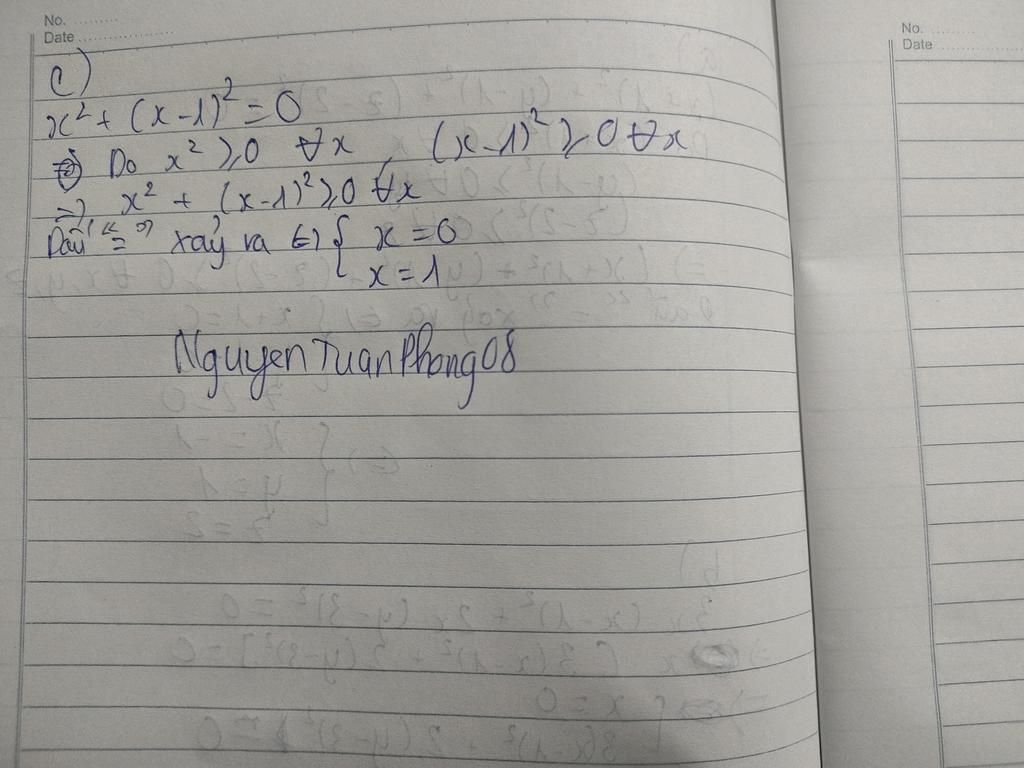 No. ..........
Date ......................
c)
x² + (x-1)² = 0
Do x² ≥ 0 ∀x , (x-1)² ≥ 0 ∀x
=> x² + (x-1)² ≥ 0 ∀x
Dấu "=" xảy ra <=> { x = 0
x = 1
NguyenTuanPhong08
No. ..........
Date ......................